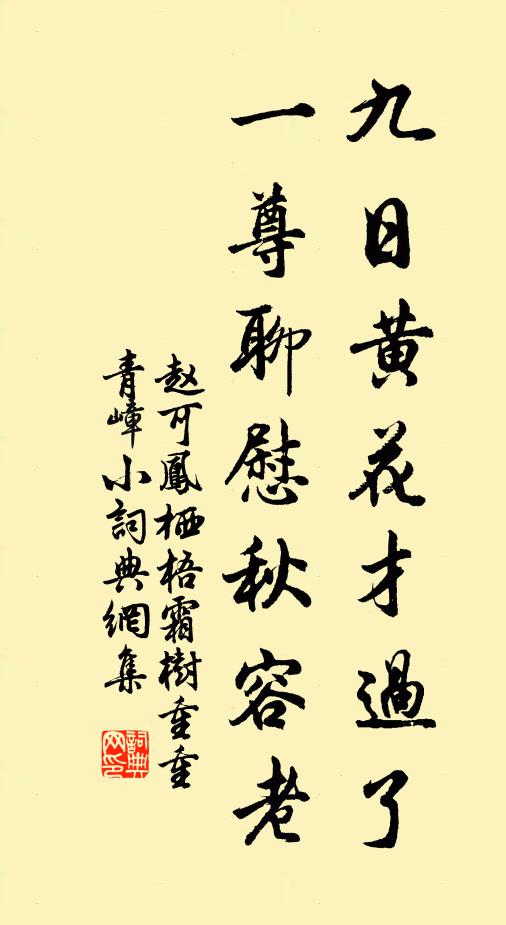 九日黄花才過了
一尊聊慰秋容老
赵可鳳栖梧霜樹重重
青嶂小詞典網集
詞典網印